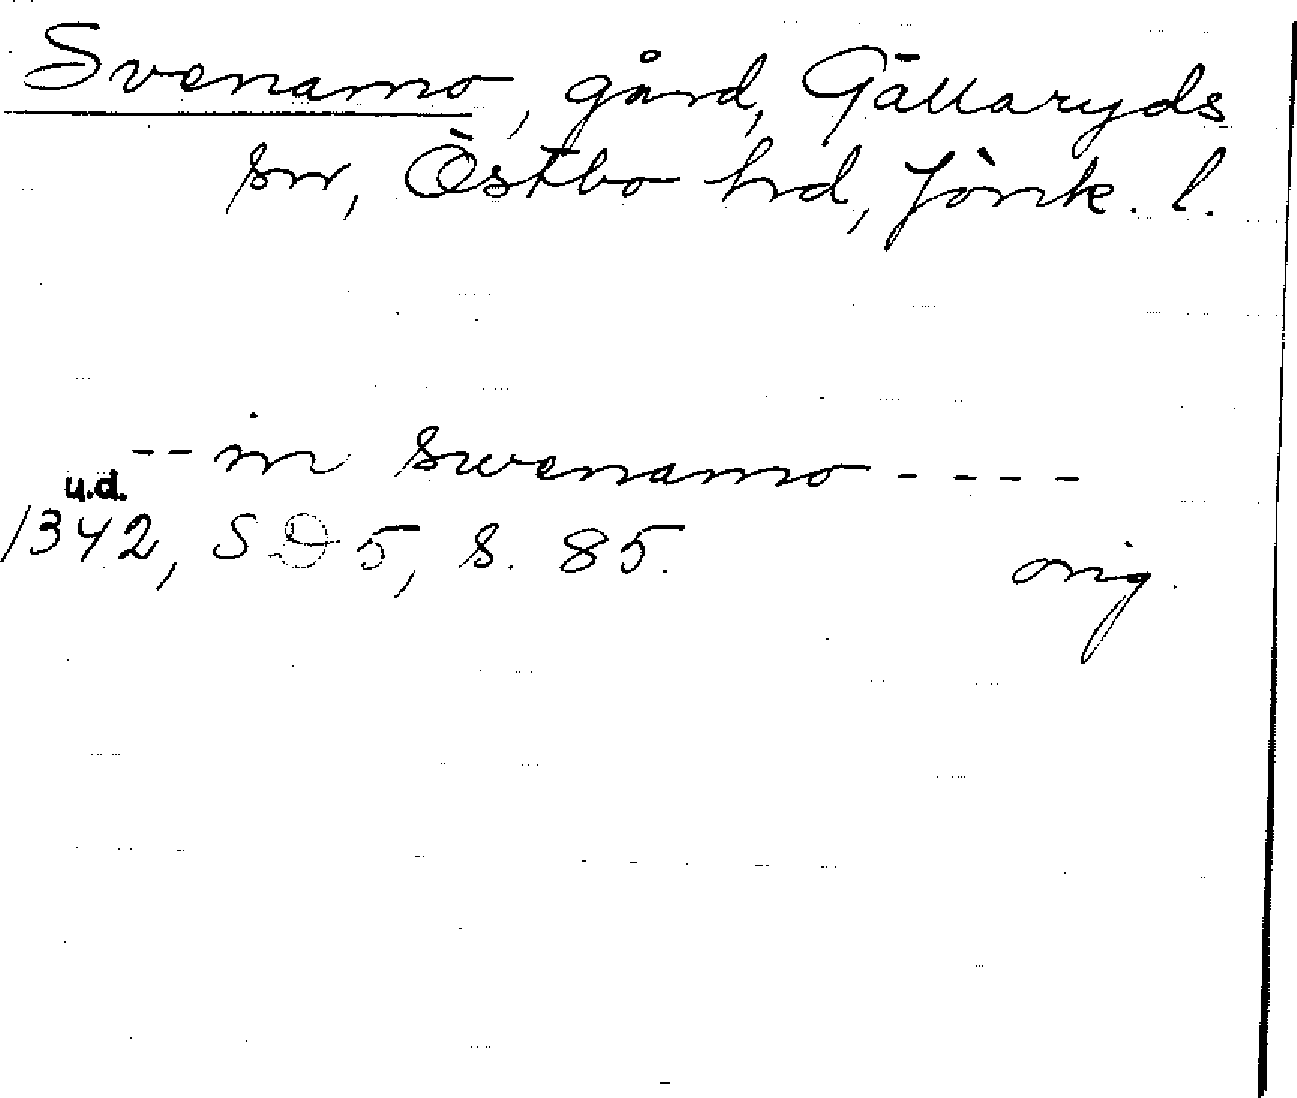 Svenamo, gård, Gällaryds
sn, Östbo hd, Jönk. l.
-- in Swenamo ----
u.d.
1342, SD 5, s. 85.
orig.